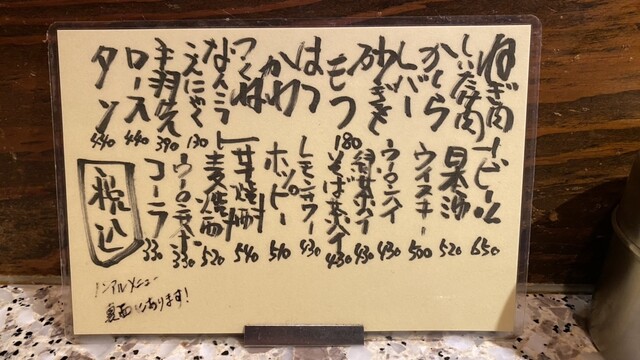 ねぎ肉
しいたけ肉
かしら
レバー
砂ぎも
もつ
はつ
かわ
つくね
なんこつ
こんにゃく
手羽先
ロース
タン
180
130
390
440
440
ビール 650
日本酒 520
ウイスキー 500
ウーロンハイ 430
緑茶ハイ 430
そば茶ハイ 430
レモンサワー 430
ホッピー 510
芋焼酎 540
麦焼酎 520
ウーロン茶 330
コーラ 330
税込
ノンアルメニュー
裏面にあります!